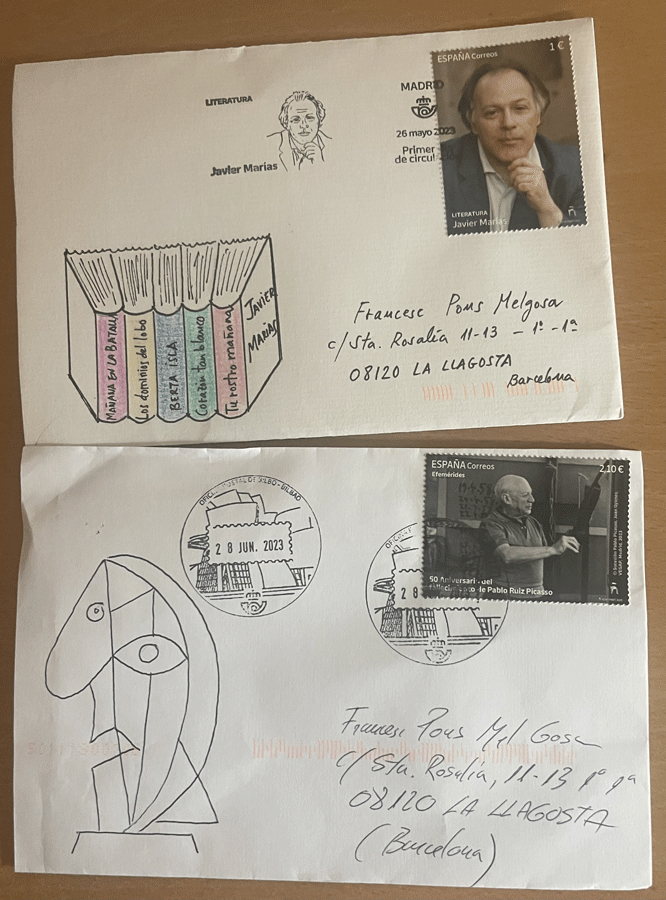 LITERATURA
Javier Marías
MADRID
26 mayo 2023
Primer
de circul
ESPAÑA Correos
1 €
LITERATURA
Javier Marías
MAÑANA EN LA BATALLA
Los dominios del lobo
BERTA ISLA
Corazón tan blanco
Tu rostro mañana
JAVIER
MARÍAS
Francesc Pons Melgosa
c/Sta. Rosalia 11-13 - 1º - 1ª
08120 LA LLAGOSTA
Barcelona
OFICINA POSTAL DE BILBAO - BILBAO
28 JUN. 2023
OFICINA
28
ESPAÑA Correos
Efemérides
2,10 €
50 Aniversari del
fallecimiento de Pablo Ruiz Picasso
Francesc Pons Mel Gosa
c/ Sta. Rosalia, 11-13 1º 1ª
08120 LA LLAGOSTA
(Barcelona)